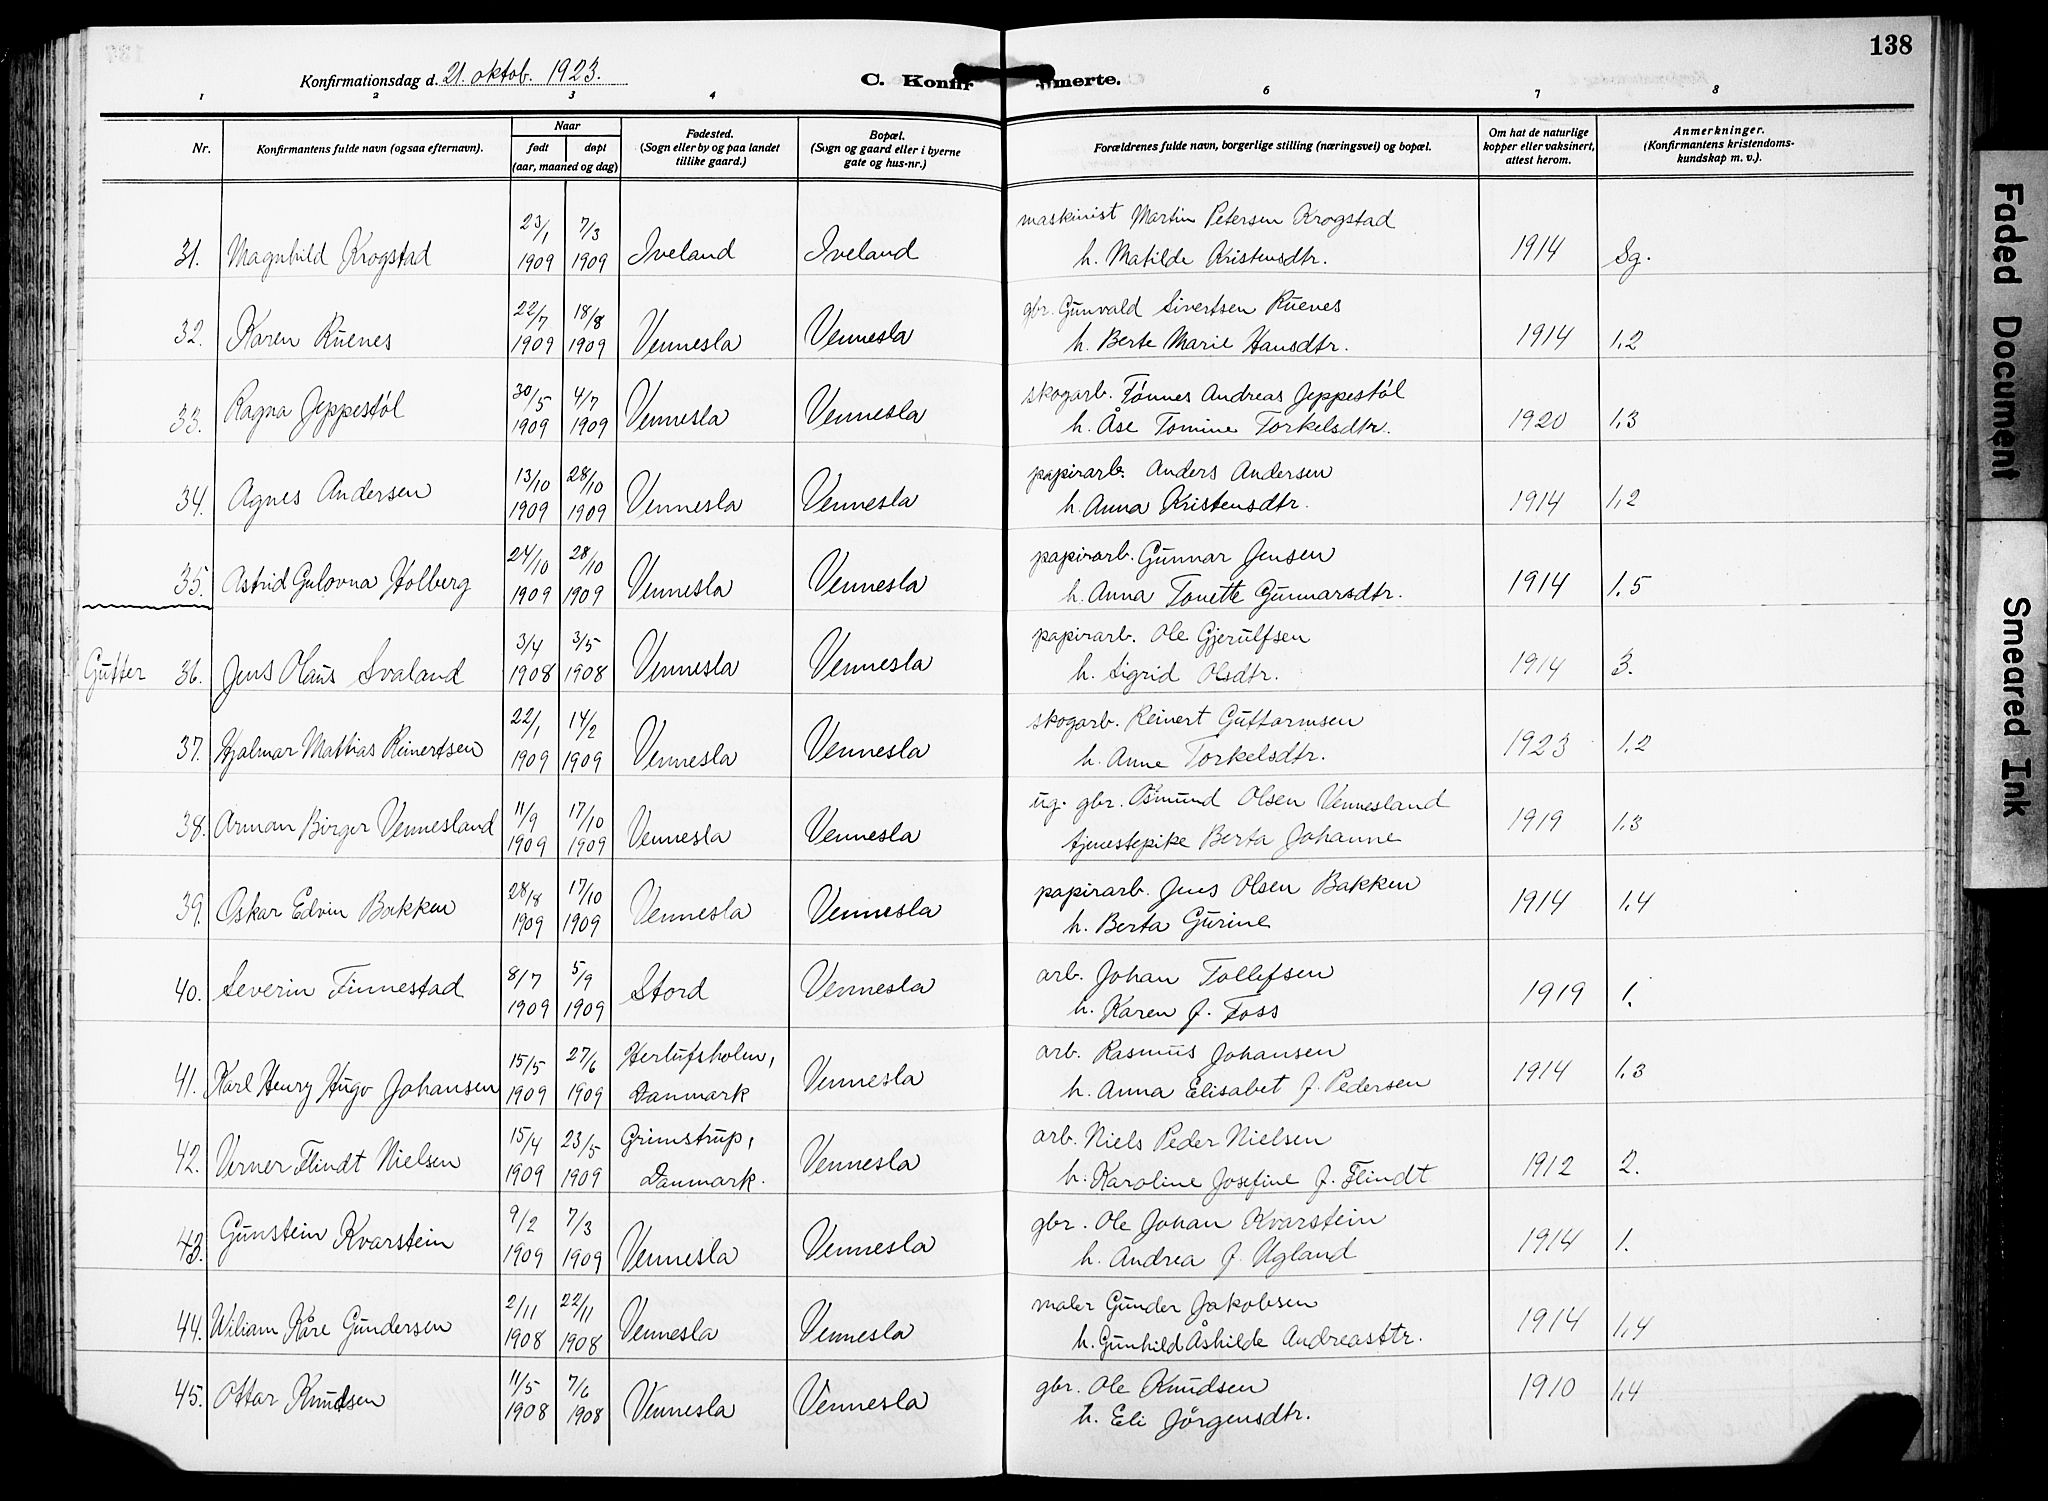 138
Konfirmationsdag d. 21. oktob. 1923.
C. Konfir merte.
1 2 3 4 6 7 8
Nr.
Konfirmantens fulde navn (ogsaa efternavn).
Naar
født døpt
(aar, maaned og dag)
Fødested.
(Sogn eller by og paa landet
tillike gaard.)
Bopæl.
(Sogn og gaard eller i byerne
gate og hus-nr.)
Forældrenes fulde navn, borgerlige stilling (næringsvei) og bopæl.
Om hat de naturlige
kopper eller vaksinert,
attest herom.
Anmerkninger.
(Konfirmantens kristendoms-
kundskap m. v.).
23/1 7/3 maskinist Martin Petersen Krogstad
31. Magnhild Krogstad 1909 1909 Iveland Iveland h. Matilde Kristensdtr. 1914 Sg.
22/7 18/8 gbr. Gunvald Sivertsen Ruenes
32. Karen Ruenes 1909 1909 Vennesla Vennesla h. Berte Marie Hansdtr. 1914 1,2
30/5 4/7 skogarb. Tønnes Andreas Jeppestøl
33. Ragna Jeppestøl 1909 1909 Vennesla Vennesla h. Åse Tomine Torkelsdtr. 1920 1,3
13/10 28/10 papirarb. Anders Andersen
34. Agnes Andersen 1909 1909 Vennesla Vennesla h. Anna Kristensdtr. 1914 1,2
24/10 28/10 papirarb. Gunnar Jensen
35. Astrid Gulovna Holberg 1909 1909 Vennesla Vennesla h. Anna Tonette Gunnarsdtr. 1914 1,5
3/4 3/5 papirarb. Ole Gjerulfsen
Gutter 36. Jens Olaus Svaland 1908 1908 Vennesla Vennesla h. Sigrid Olsdtr. 1914 3.
22/1 14/2 skogarb. Reinert Guttormsen
37. Hjalmar Mathias Reinertsen 1909 1909 Vennesla Vennesla h. Anne Torkelsdtr. 1923 1,2
11/9 17/10 ug. gbr. Osmund Olsen Vennesland
38. Arman Birger Vennesland 1909 1909 Vennesla Vennesla tjenestepike Berta Johanne 1919 1,3
28/8 17/10 papirarb. Jens Olsen Bakken
39. Oskar Edvin Bakken 1909 1909 Vennesla Vennesla h. Berta Gurine 1914 1,4
8/7 5/9 arb. Johan Tollefsen
40. Severin Finnestad 1909 1909 Stord Vennesla h. Karen f. Foss 1919 1.
15/5 27/6 Herlufsholm, arb. Rasmus Johansen
41. Karl Henry Hugo Johansen 1909 1909 Danmark Vennesla h. Anna Elisabet f. Pedersen 1914 1,3
15/4 23/5 Grimstrup, arb. Niels Peder Nielsen
42. Verner Flindt Nielsen 1909 1909 Danmark. Vennesla h. Karoline Josefine f. Flindt 1912 2.
9/2 7/3 gbr. Ole Johan Kvarstein
43. Gunstein Kvarstein 1909 1909 Vennesla Vennesla h. Andrea f. Ugland 1914 1.
2/11 22/11 maler Gunder Jakobsen
44. Wiliam Kåre Gundersen 1908 1908 Vennesla Vennesla h. Gunhild Åshilde Andreasdtr. 1914 1,4
11/5 7/6 gbr. Ole Knudsen
45. Ottar Knudsen 1908 1908 Vennesla Vennesla h. Eli Jörgensdtr. 1910 1,4
Faded Document
Smeared Ink